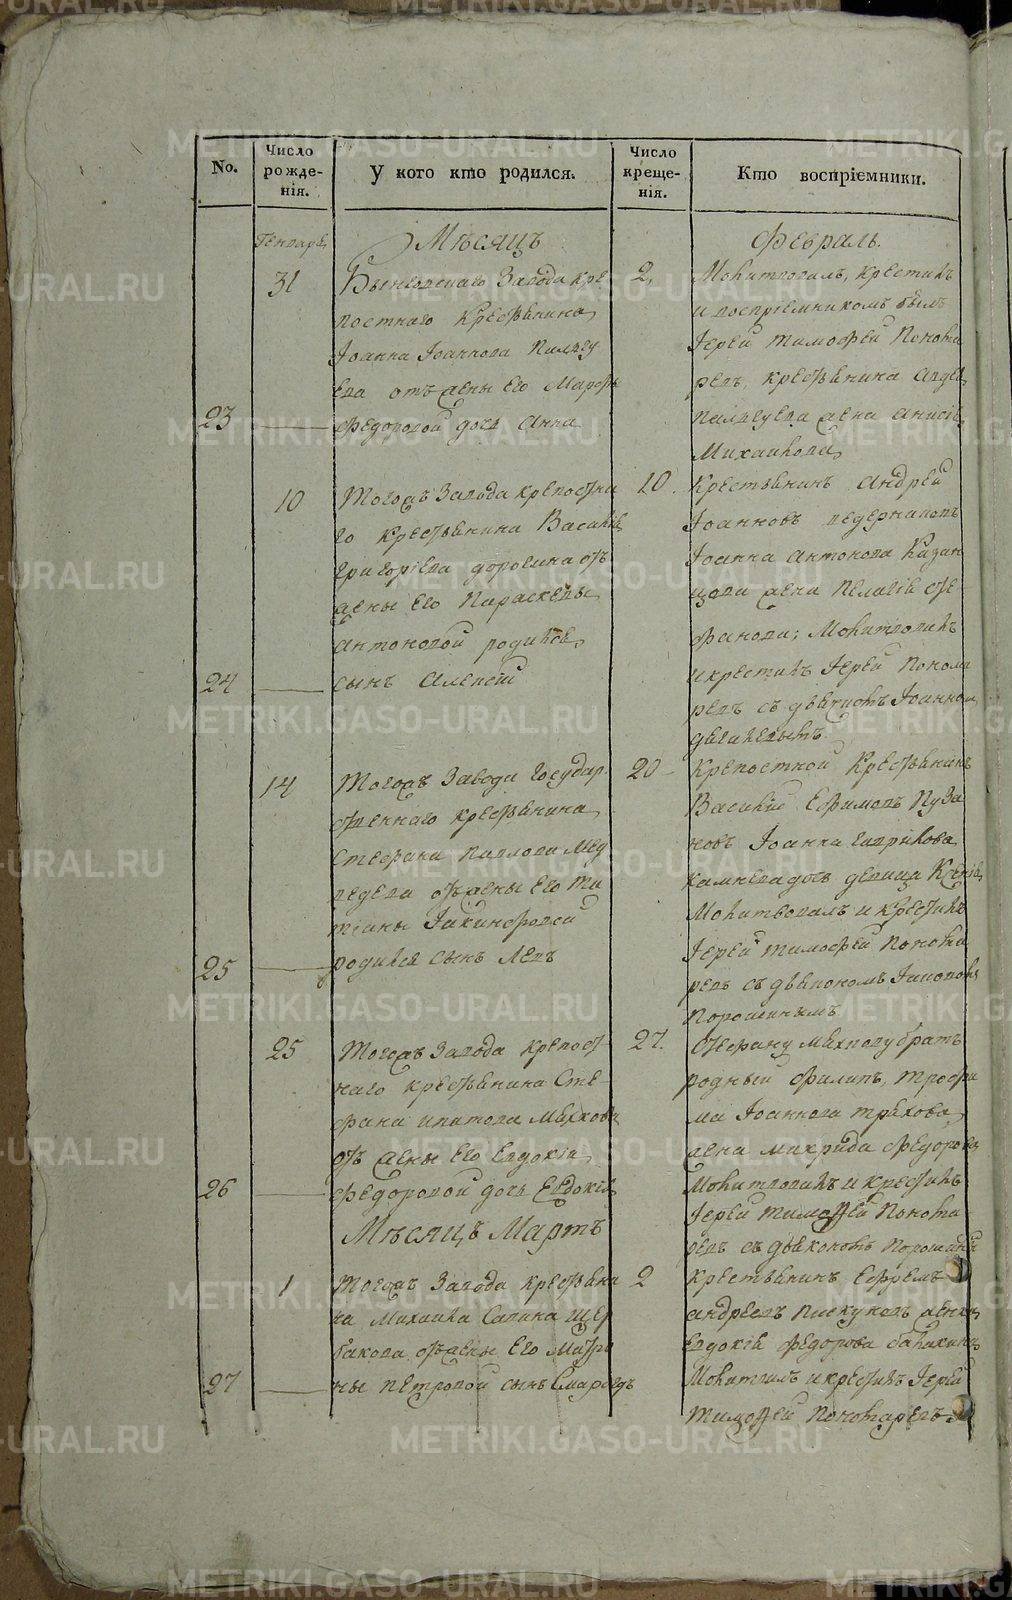 No.
Число рожде-нія.
У кого кто родился.
Число креще-нія.
Кто воспріемники.
Генваря
Мѣсяцъ
Февраль.
23
31
Завода кре
постнаго крестьянина
Іоанна Іоаннова
отъ жены его Марѳы
Федоровой дочь Анна
2.
Молитвовалъ, крестилъ
и воспріемникомъ былъ
Іерей Тимофей Понома
ревъ, крестьянина
жена Анисія
Михайлова
24
10
Тогожъ Завода крепостна
го крестьянина Василія
Григоріева дорогина отъ
жены его Параскевы
Антоновой родился
сынъ Алексій
10.
Крестьянинъ Андрей
Іоанновъ ведерниковъ
Іоанна Антонова Казан
цова жена Пелагія Сте
фанова; Молитвовалъ
и крестилъ Іерей Понома
ревъ съ дьячкомъ Іоанном
25
14
Тогожъ Завода Государ
ственнаго крестьянина
Стефана Павлова Мед
ведева отъ жены его Та
тіаны Іакинфовой
родился сынъ Левъ
20
Крепостной Крестьянинъ
Василій Ефимовъ Пуза
новъ Іоанна Гаврилова
дочь девица Ксенія
Молитвовалъ и крестилъ
Іерей Тимофей Понома
ревъ съ дьякономъ Іаковомъ
Порошинымъ
26
25
Тогожъ Завода крепост
наго крестьянина Сте
фана Ипатова
отъ жены его Евдокіи
Федоровой дочь Евдокія
27.
Стефану братъ
родный Филипъ, Трофи
ма Іоаннова
жена Макрида Федорова
Молитвовалъ и крестилъ
Іерей Тимофей Понома
ревъ съ дьякономъ
Мѣсяцъ Мартъ
27
1
Тогожъ Завода крестьяни
на Михаила Савина Щер
бакова отъ жены его Матро
ны Петровой сынъ
2
Крестьянинъ Ефремъ
Андреевъ Пискуновъ жена
Евдокія Федорова
Молитвовалъ и крестилъ Іерей
Тимофей Пономаревъ
METRIKI.GASO-URAL.RU